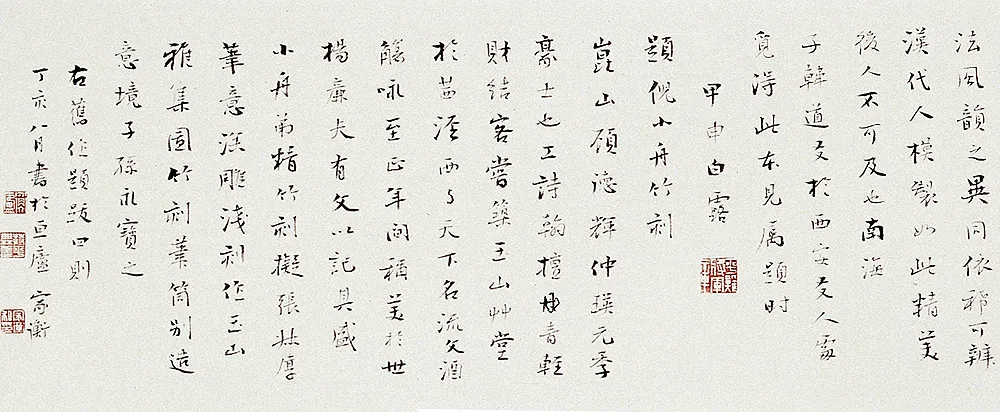 法風韻之異同依稀可辨
漢代人模製如此精美
後人不可及也南海
子韓道友於西安友人處
覓得此本見屬題時
甲申白露
題倪小舟竹刻
崑山顧德輝仲瑛元季
豪士也工詩翰擅丹青輕
財結客嘗築玉山艸堂
於茜涇西与天下名流文酒
觴咏至正年间稱美於世
楊廉夫有文以記其盛
小舟弟精竹刻擬張壯厚
筆意深雕淺刻作玉山
雅集圖竹刻筆筒别造
意境子孫永寶之
右舊作題跋四則
丁亥八月書於亘廬家衡